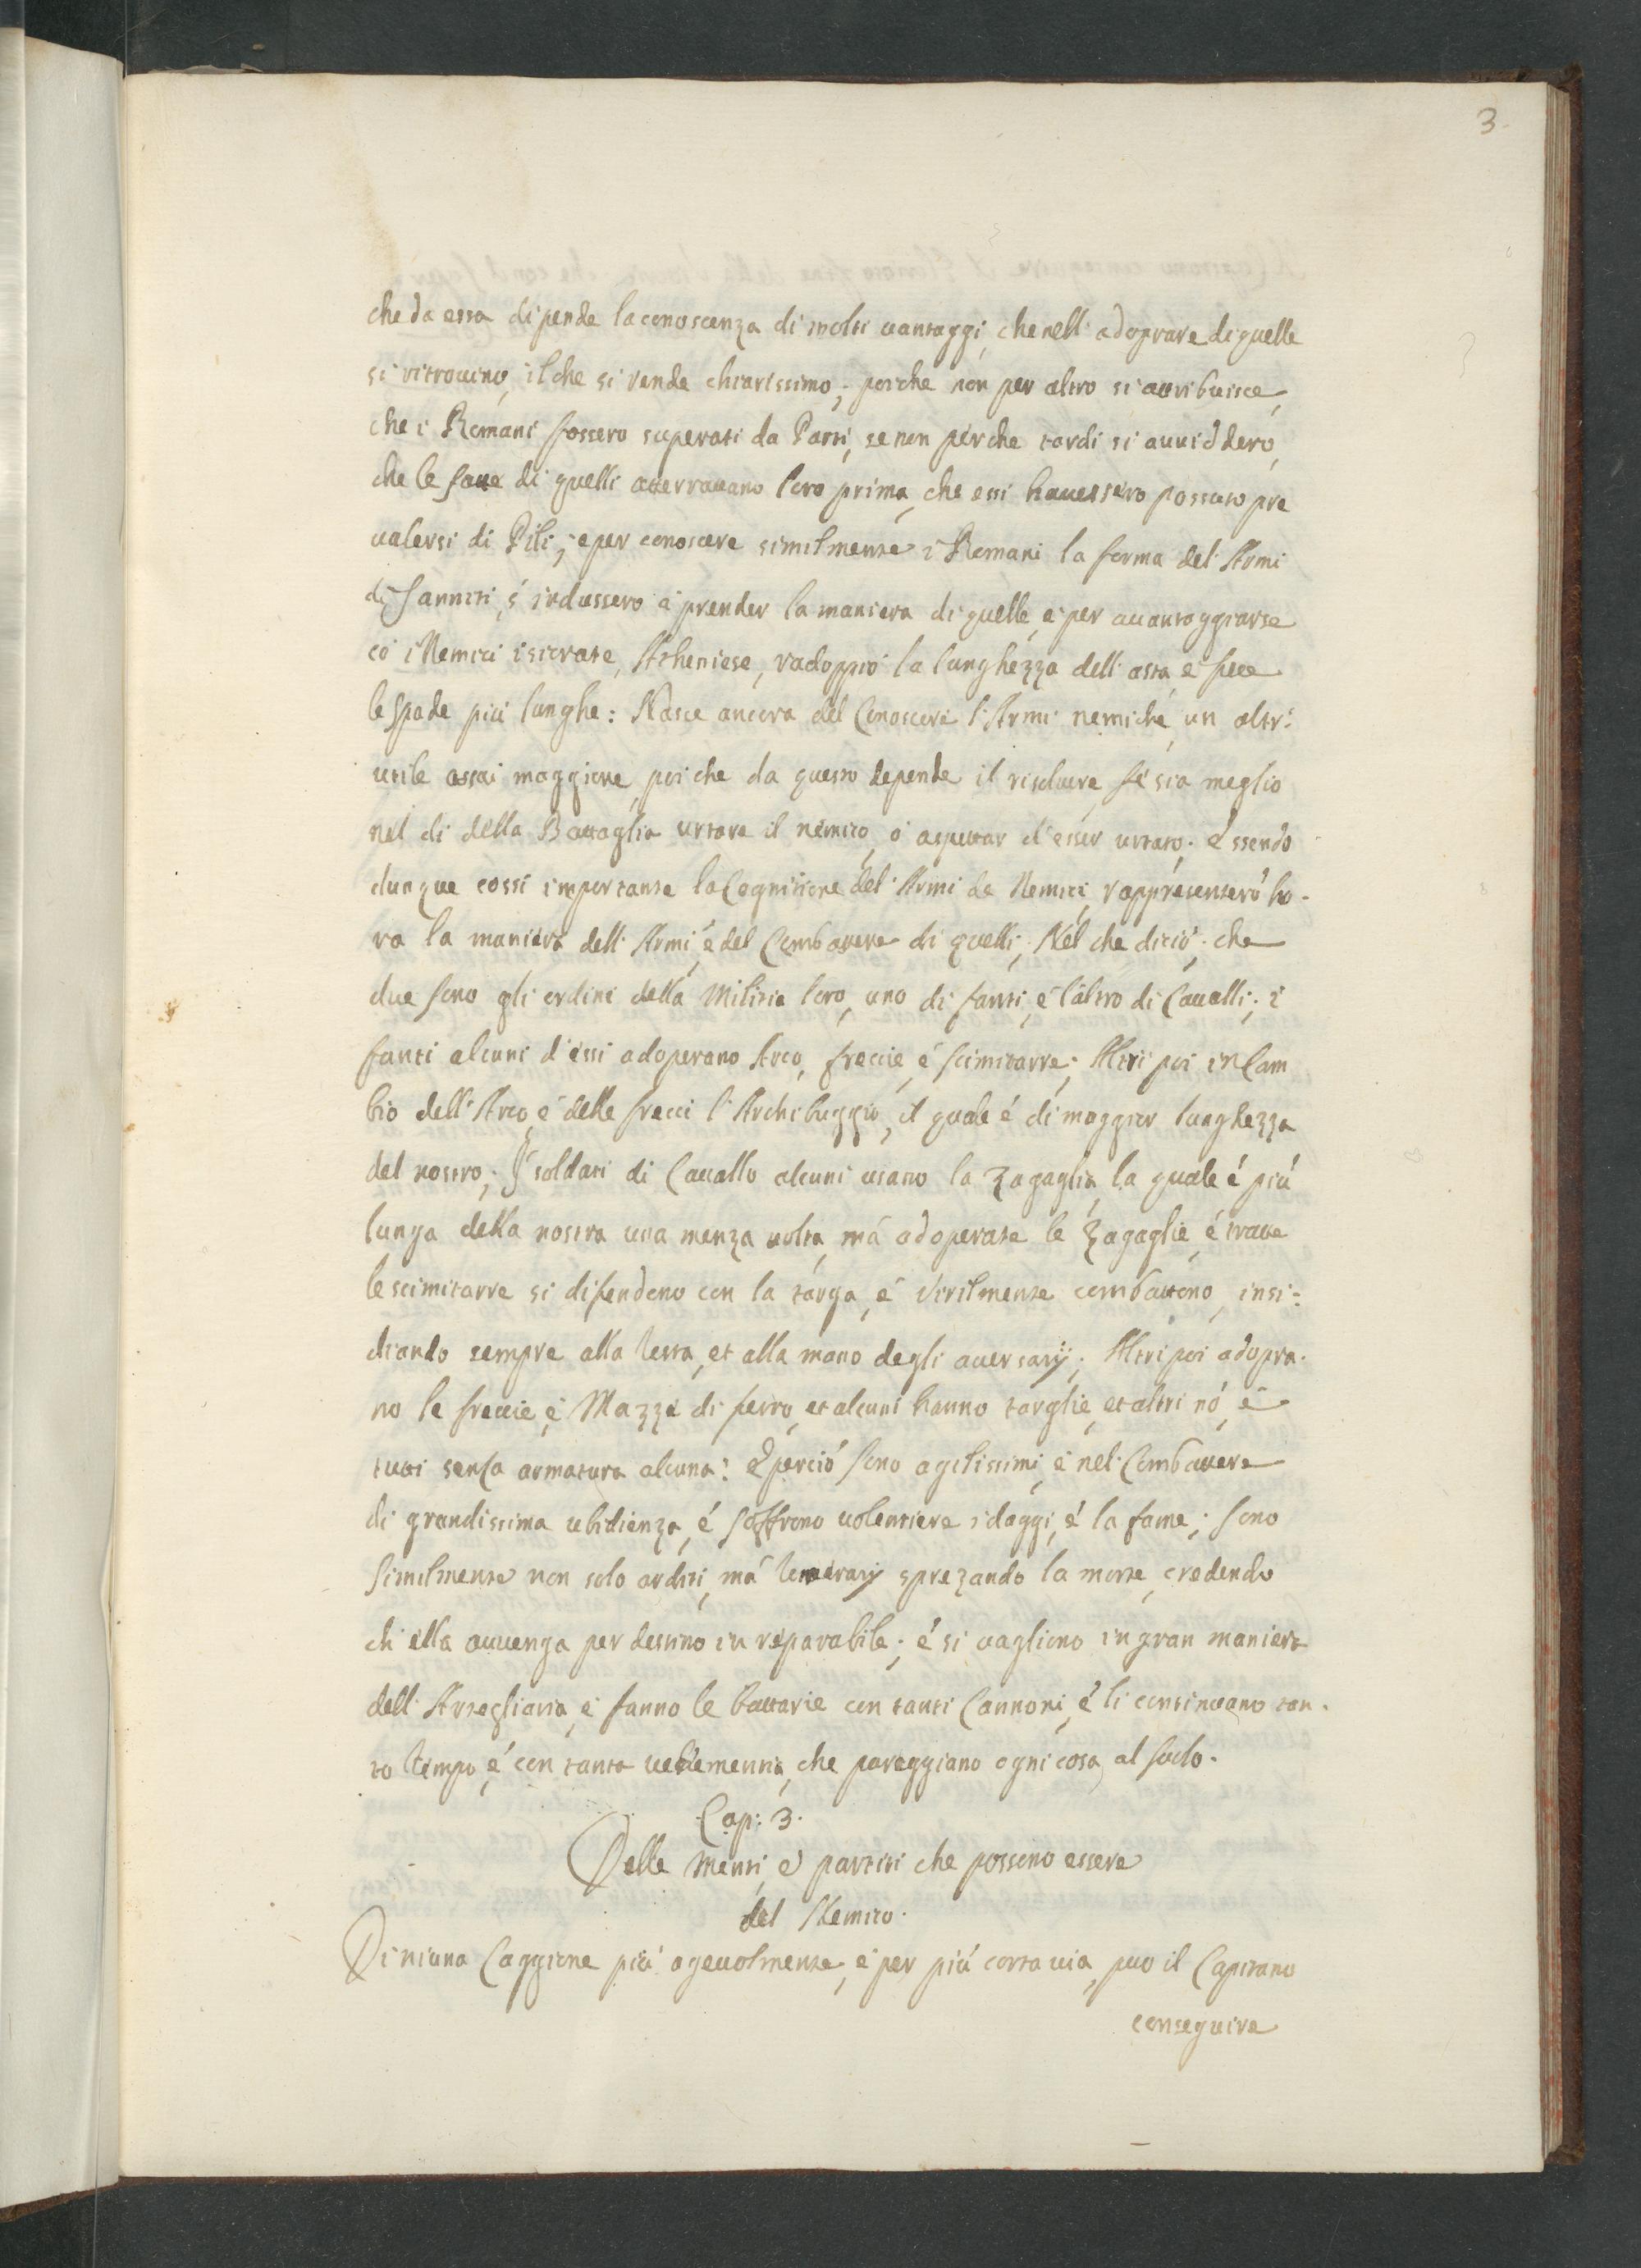 3.
che da essa dipende la conoscenza di molti uantaggi, che nell' adoprare di quelle
si ritrouino, il che si rende chiarissimo; poiche non per altro si attribuisce,
che i Romani fossero superati da Parti, se non perche tardi si auuiddero,
che le saette di quelli atterrauano loro prima, che essi hauessero possuto pre
ualersi di Pili; e per conoscere similmente i Romani la forma del' Armi
di Sanniti, s' indussero à prender la maniera di quelle, e per auantaggiarse
cò i Nemici isicrate, Atheniese, radoppiò la lunghezza dell' asta, e fece
le spade più lunghe: Nasce ancora del Conoscere l' Armi nemiche, un altr'
utile assai maggiore, poi che da questo depende il risoluere, se sia meglio
nel di della Battaglia urtare il nemico, ò aspettar d' esser urtato. essendo
dunque cossi importante la Cognitione del' Armi de Nemici, rappresenterò ho-
ra la maniera dell' Armi, e del Combattere di quelli; Nel che dicio, che
due sono gli ordini della Militia loro, uno di fanti, e l'altro di Caualli; i
fanti alcuni d' essi adoperano Arco, freccie, e scimitarre; Altri poi in Cam
bio dell' Arco, e delle frecci l' Archibuggio, il quale é di maggior lunghezza
del nostro; I soldati di Cauallo alcuni usano la Zagaglia, la quale é più
lunga della nostra una menza uolta, mà adoperate le Zagaglie, é tratte
le scimitarre si difendono con la targa, e virilmente combattono, insi:
diando sempre alla testa, et alla mano degli auersarij; Altri poi adopra-
no le freccie, e Mazze di ferro, et alcuni hanno targhe, et altri nò, e
tutti senza armatura alcuna: E perciò sono agilissimi, e nel Combattere
di grandissima ubidienza, é soffrono uolentiere i daggi, é la fame; sono
similmente non solo arditi, mà temerarij sprezando la morte, credendo
ch' ella auuenga per destino in reparabile; é si uagliono in gran maniera
dell' Artegliaria, e fanno le battarie con tanti Cannoni, e li continuano tan-
to tempo, é con tanta uehementia, che pareggiano ogni cosa al suolo.
Cap: 3.
Delle menti, e partiti che possono essere
del Nemico.
Di niuna Caggione più ageuolmente, e per più corta uia, puo il Capitano
conseguire